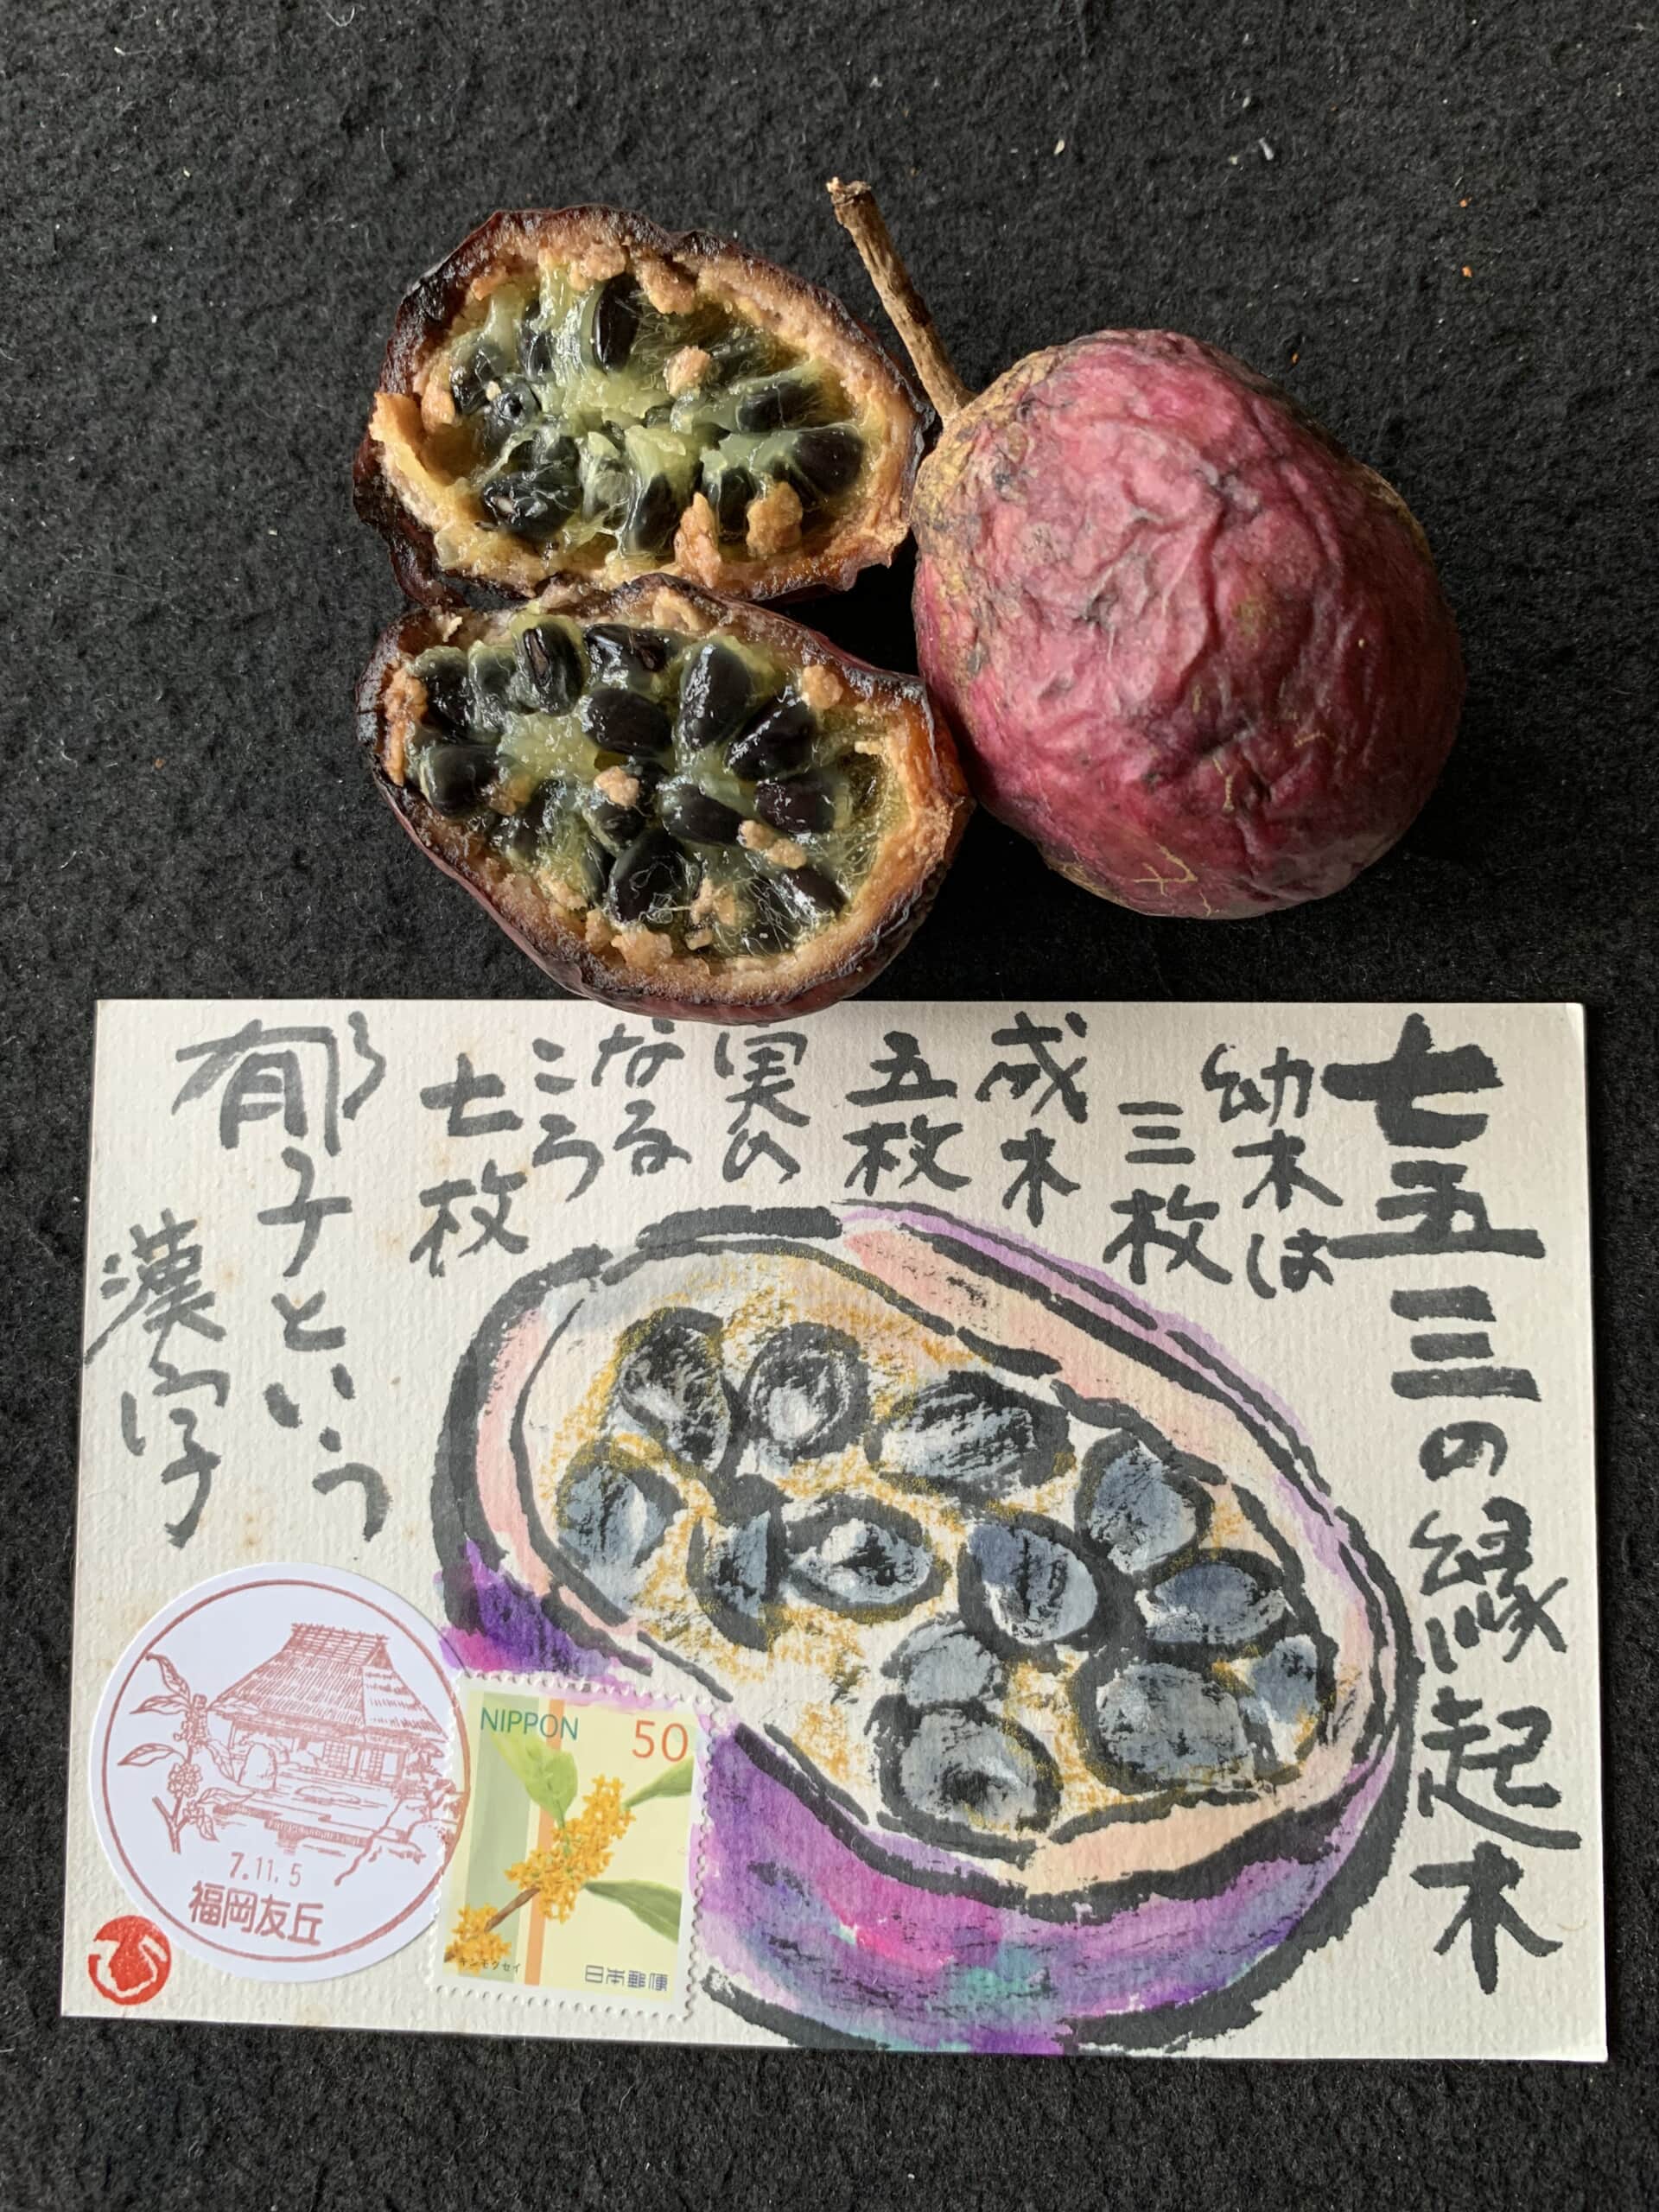 七五三の縁起木
幼木は
三枚
成木
五枚
実の
なる
ころ
七枚
郁子という
漢字
7.11.5
福岡友丘
NIPPON 50
キンモクセイ
日本郵便